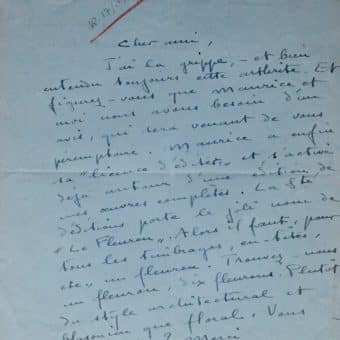 Cher ami,
J'ai la grippe, – et bien
entendu toujours cette arthrite. Et
figurez-vous que Maurice et
moi nous avons besoin d'un
avis, qui sera venant de vous
péremptoire. Maurice a enfin
sa "licence d'éditer" et s'active
déjà autour d'une édition de
mes œuvres complètes. La Sté
d'éditions porte le joli nom de
"Le Fleuron". Alors il faut, pour
tous les timbrages, en-têtes,
etc, un fleuron. Trouvez-nous
un fleuron, dix fleurons! Plutôt
du style architectural et
que floral. Vous
? Merci